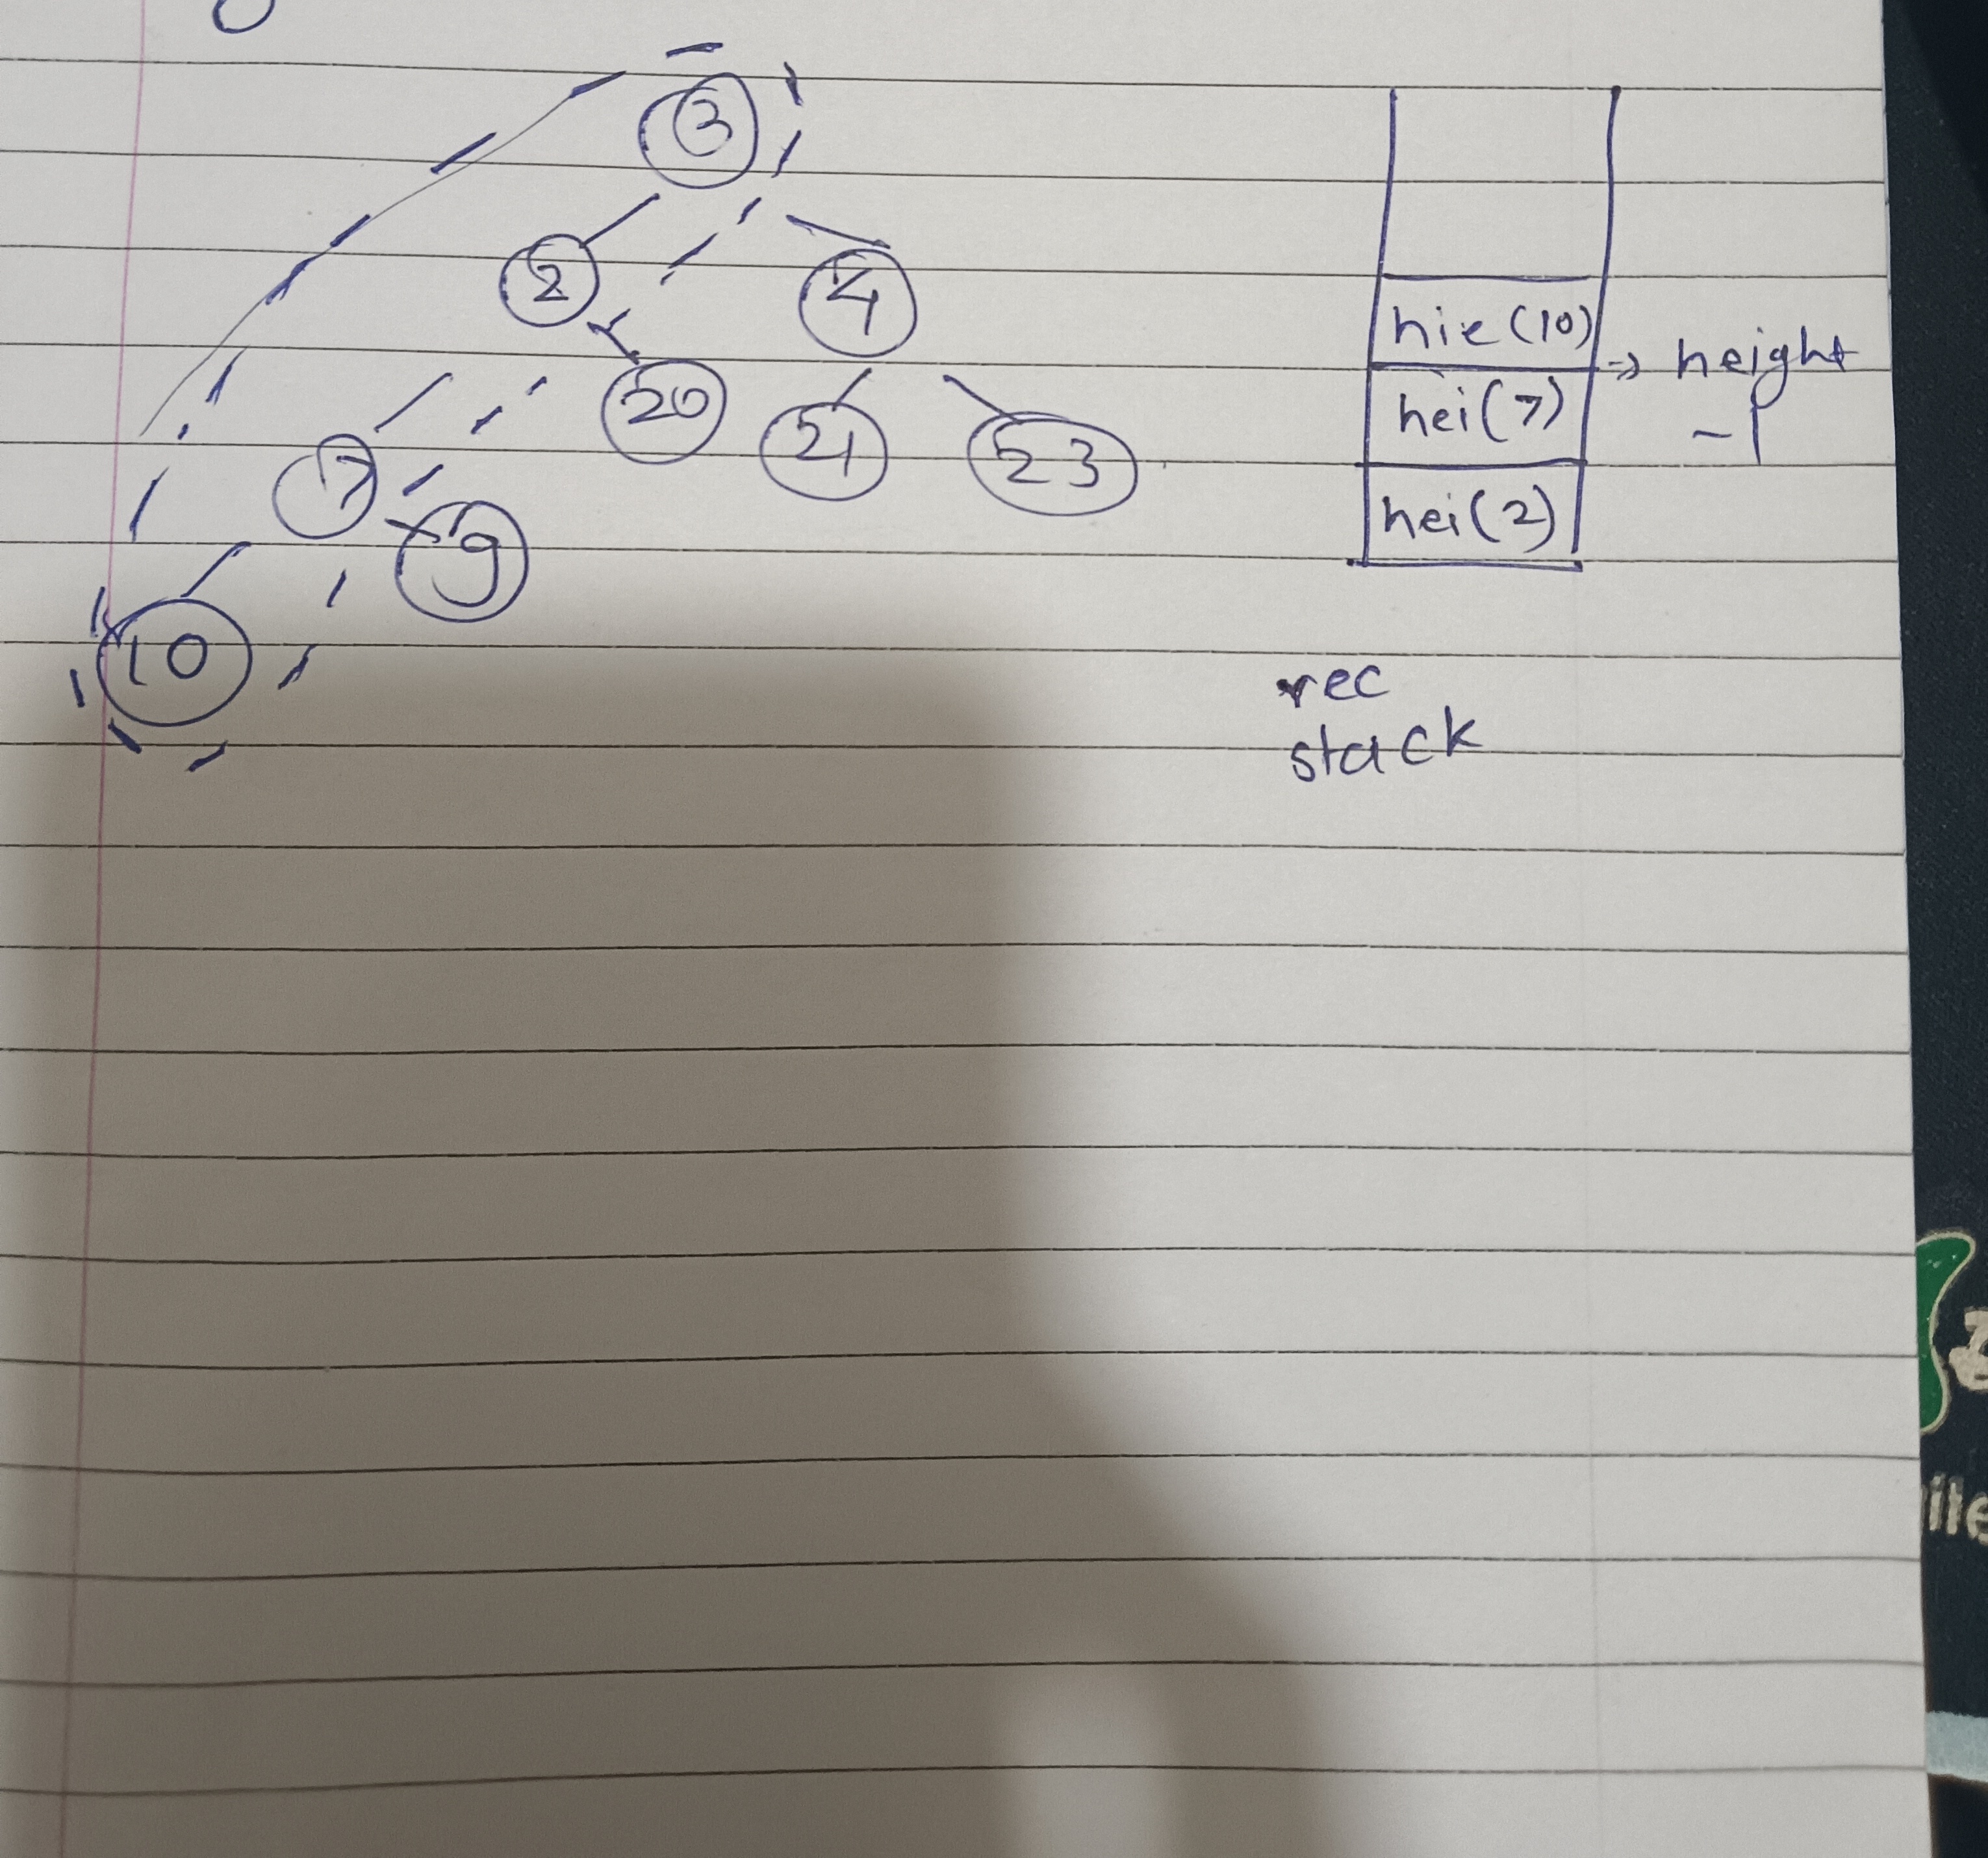 3
2
4
20
21
23
7
9
10
hie(10)
hei(7)
hei(2)
-> height
-1
rec
stack